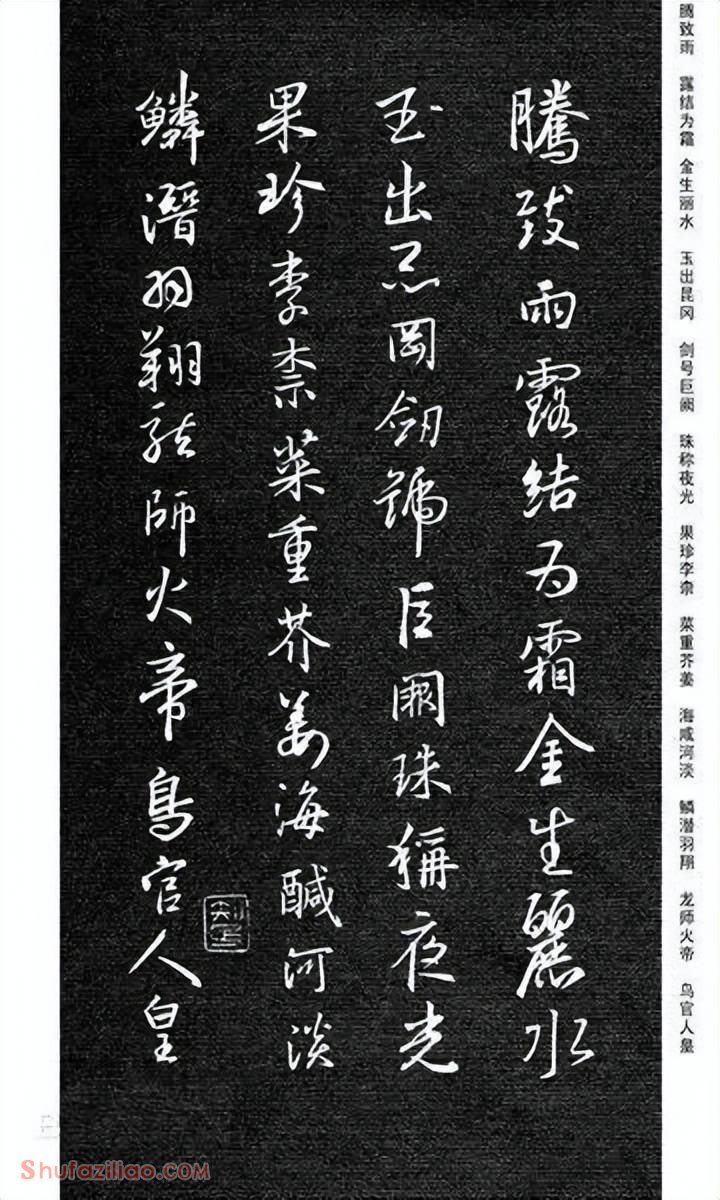 腾致雨 露结为霜 金生丽水 玉出昆冈 剑号巨阙 珠称夜光 果珍李柰 菜重芥姜 海咸河淡 鳞潜羽翔 龙师火帝 鸟官人皇
騰致雨露結為霜金生麗水
玉出崑岡劒號巨闕珠稱夜光
果珍李柰菜重芥薑海醎河淡
鱗潛羽翔龍師火帝鳥官人皇
Shufaziliao.com